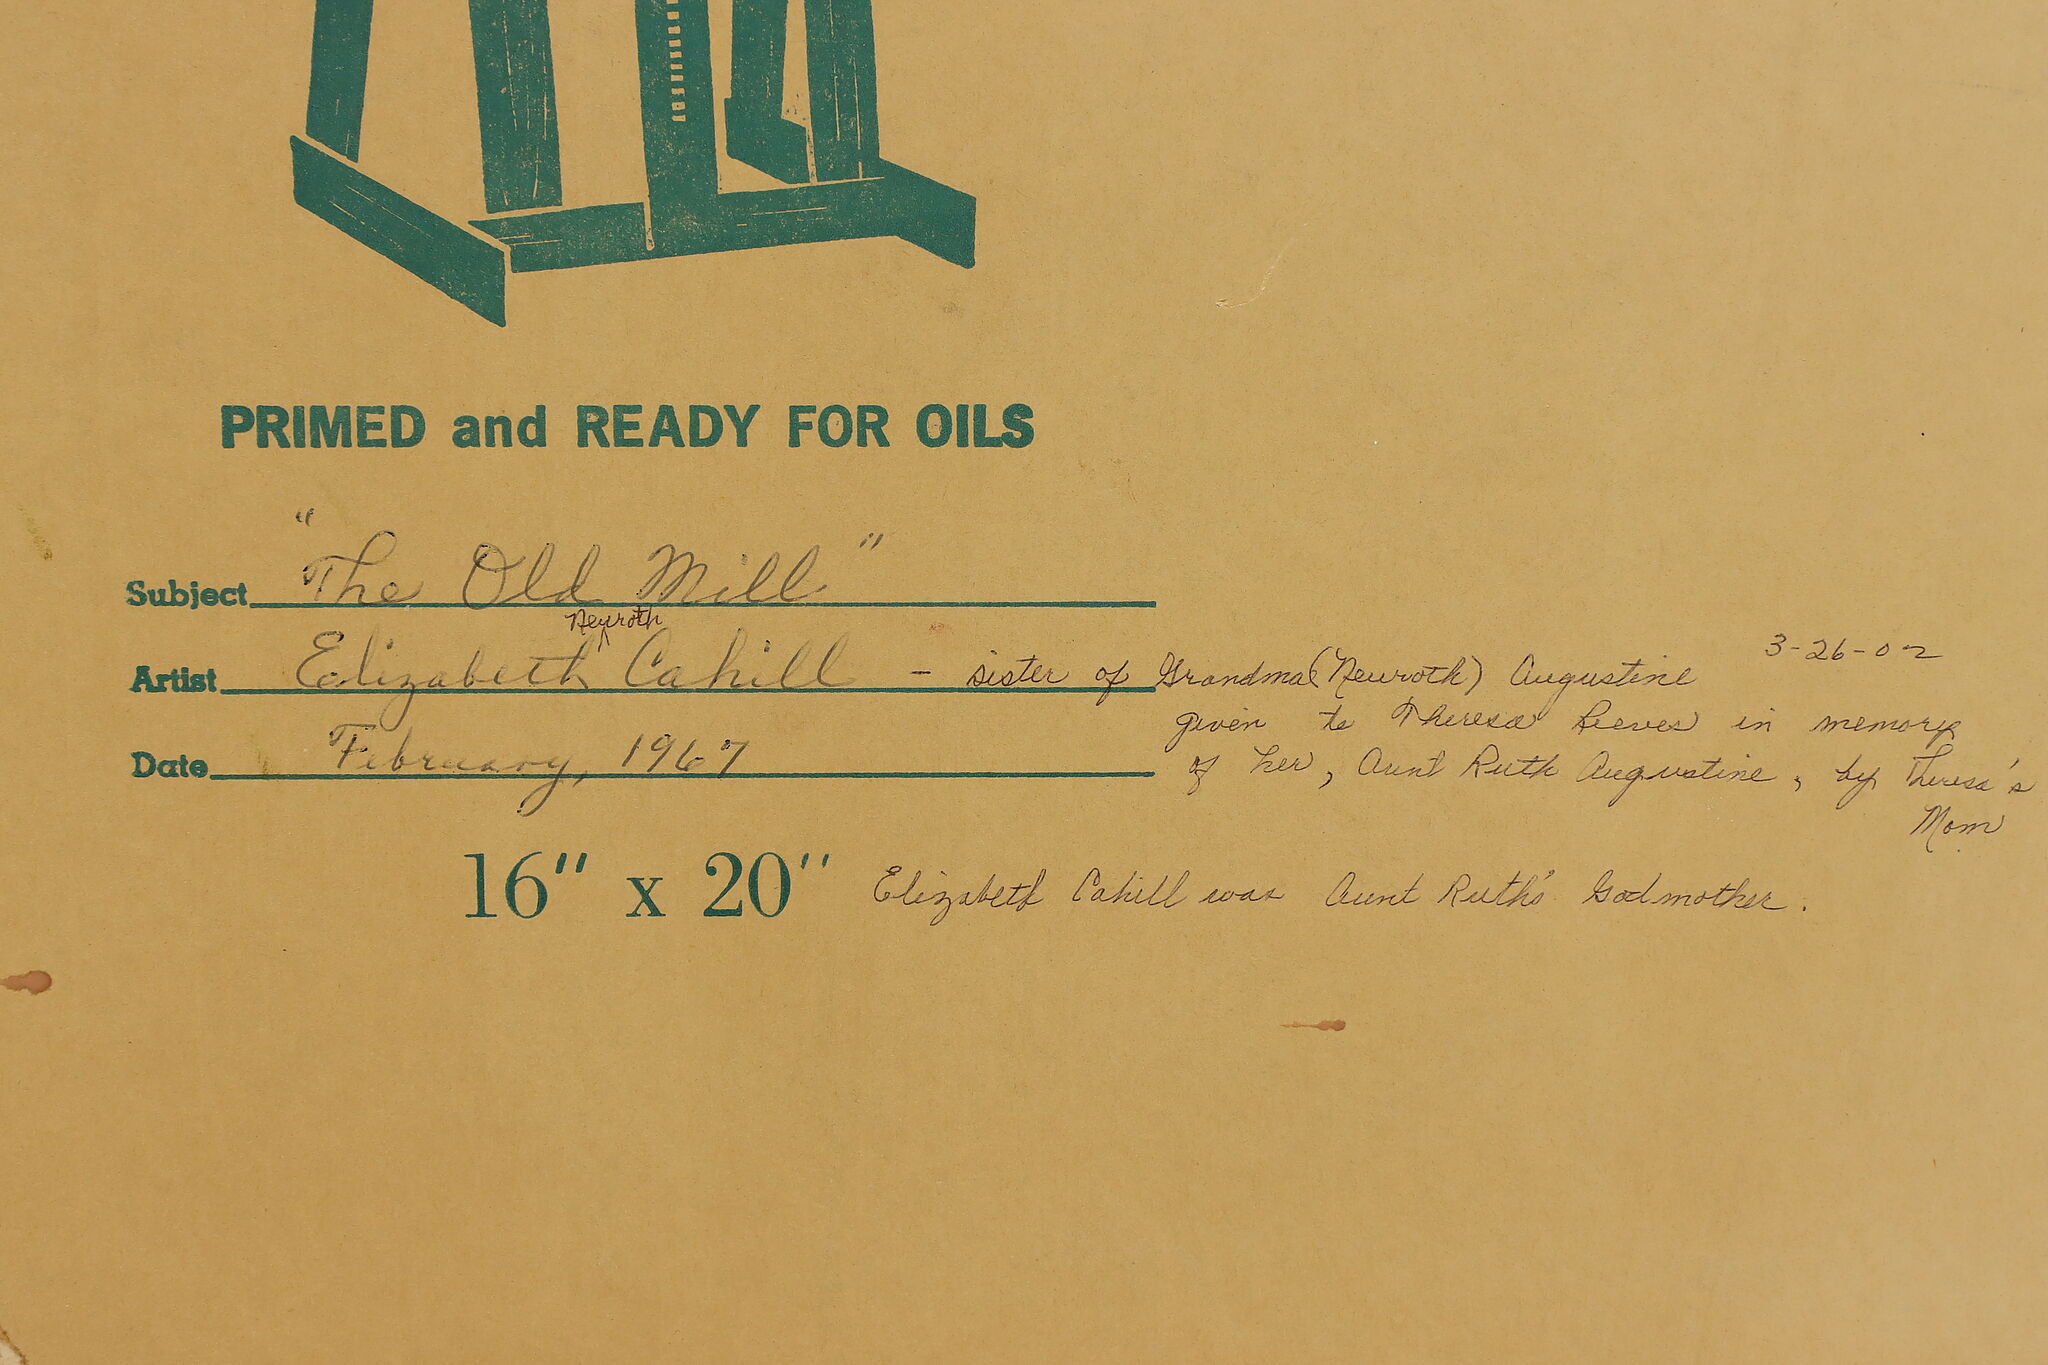 PRIMED and READY FOR OILS
Subject "The Old Mill"
Neuroth
Artist Elizabeth ^ Cahill - sister of Grandma (Neuroth) Augustine 3-26-02
given to Theresa Reeves in memory
Date February, 1967 of her, Aunt Ruth Augustine, by Theresa's
Mom
16" x 20" Elizabeth Cahill was Aunt Ruth's Godmother.